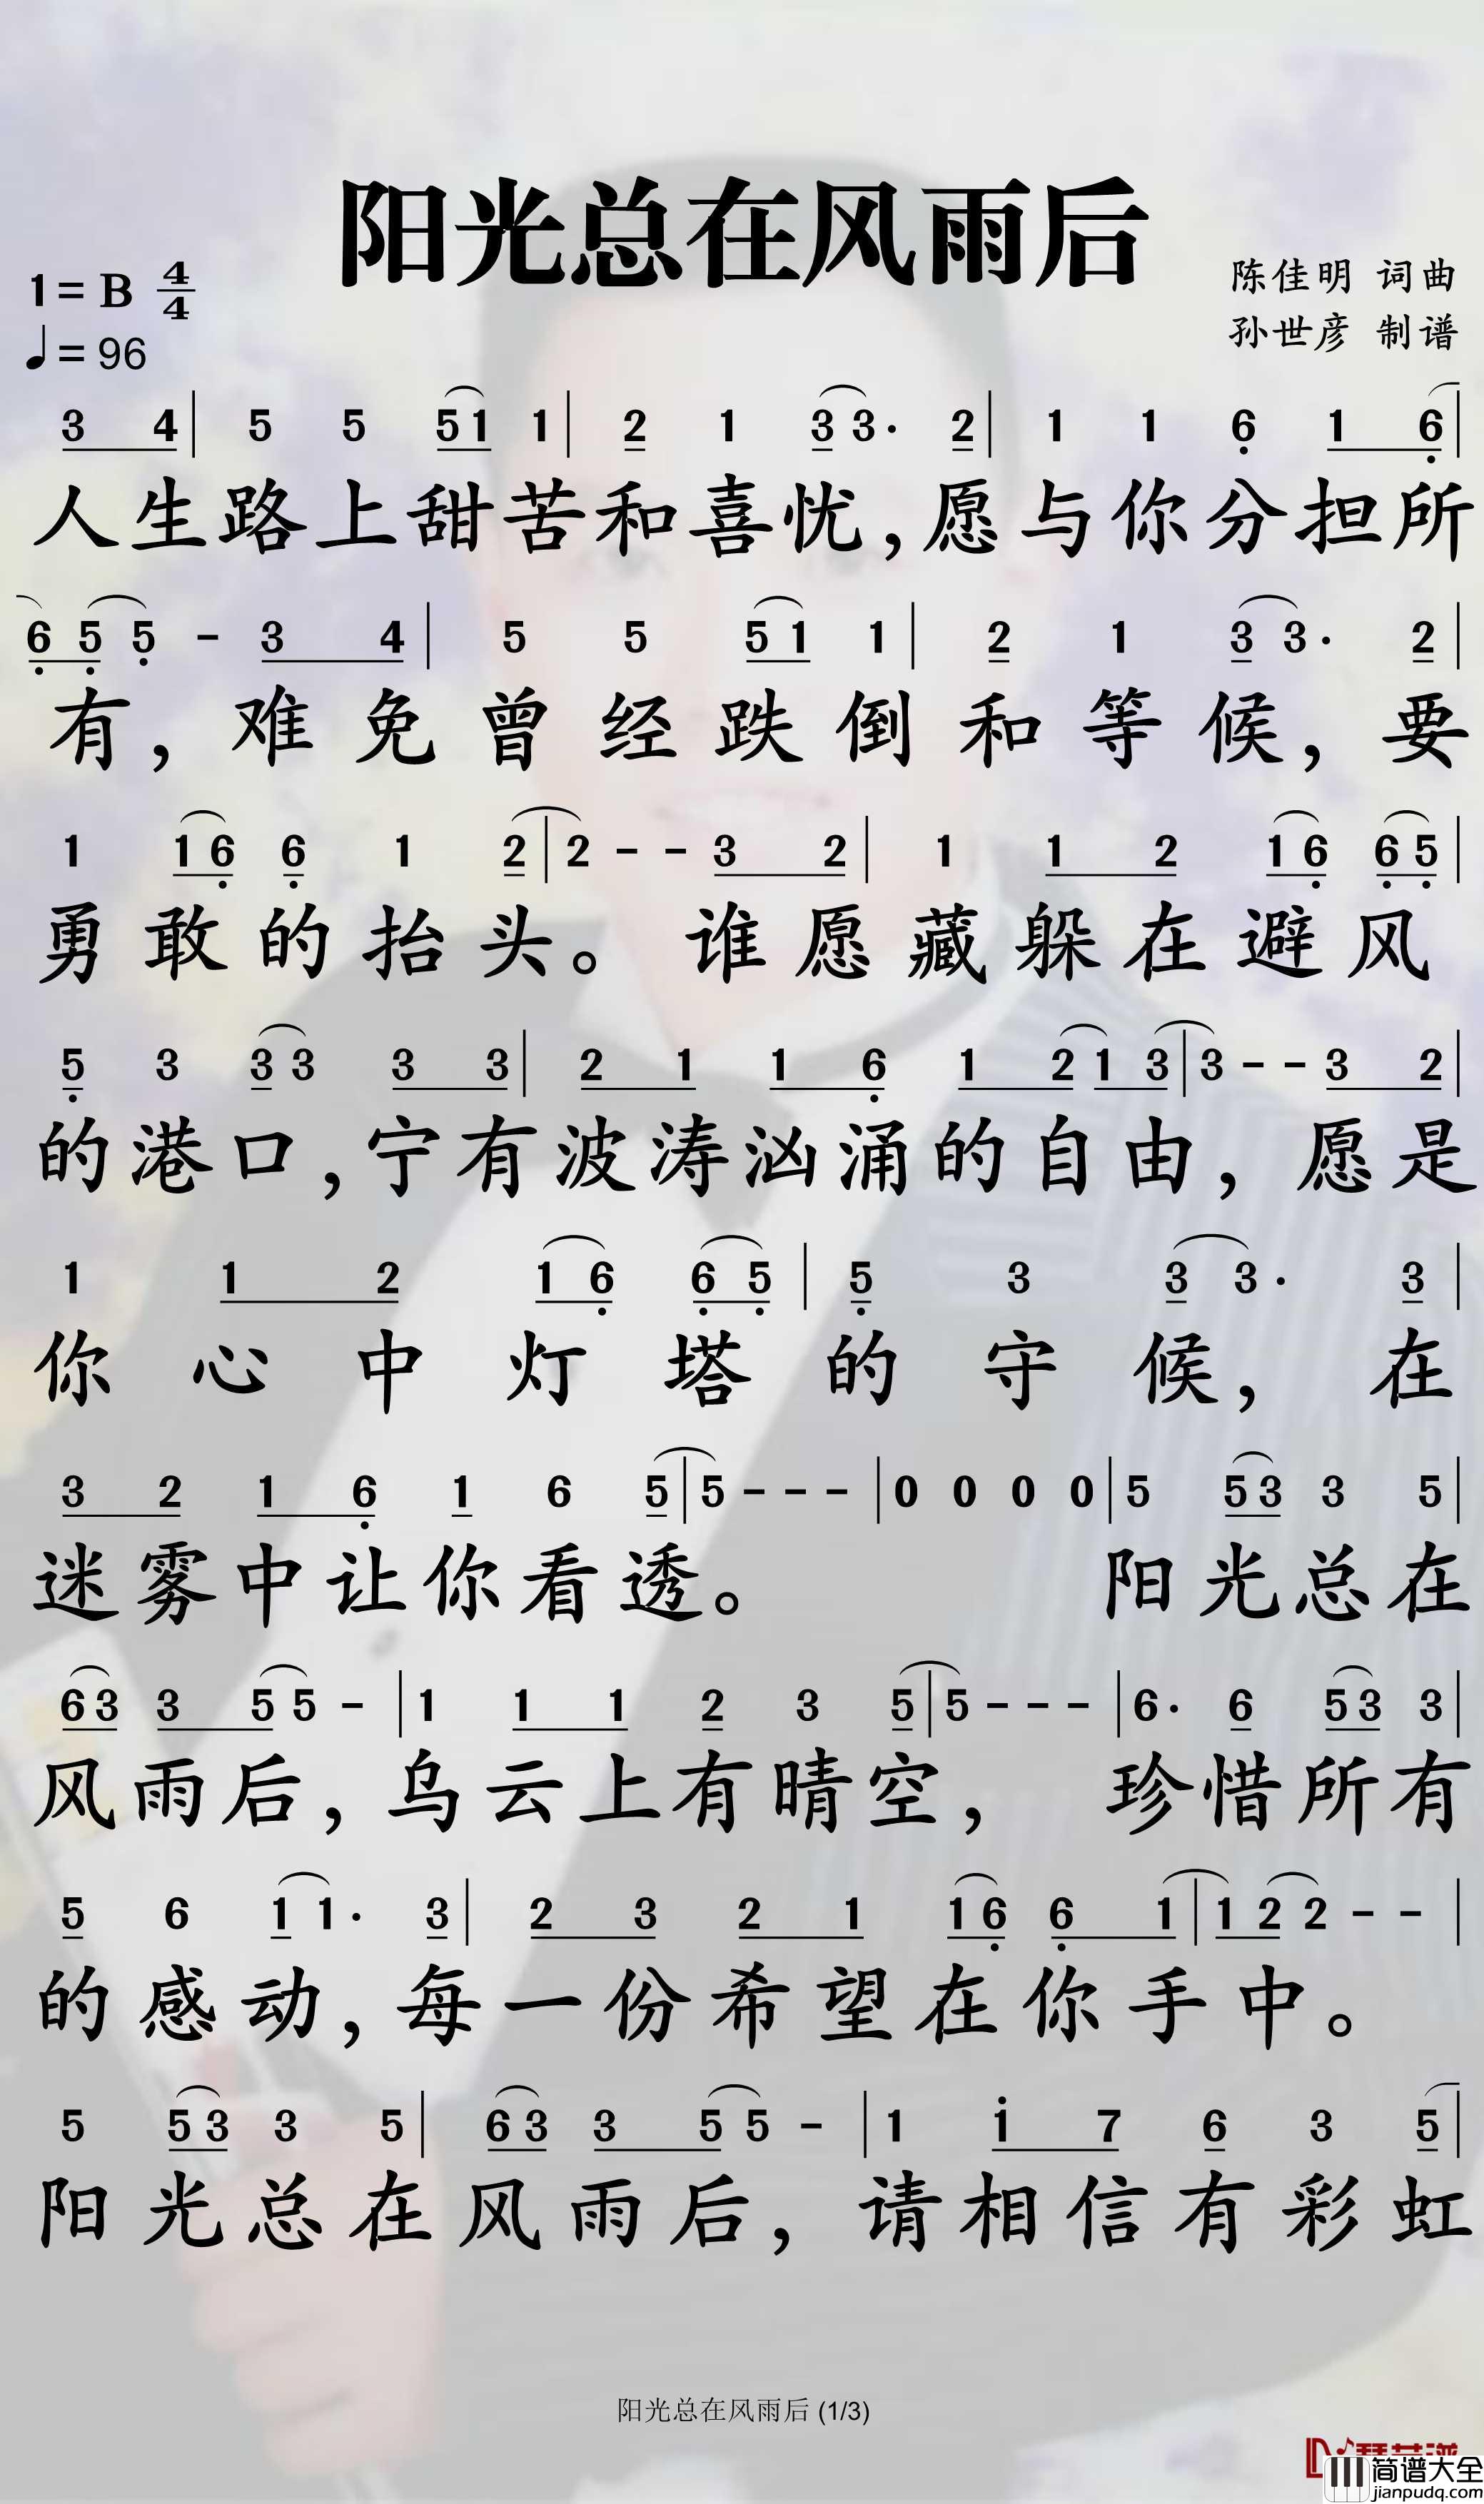 阳光总在风雨后
1= B 4/4
♩= 96
陈佳明 词曲
孙世彦 制谱
3 4 | 5 5 5 1 1 | 2 1 3 3· 2 | 1 1 6 1 6 |
人生路上甜苦和喜忧,愿与你分担所
6 5 5 - 3 4 | 5 5 5 1 1 | 2 1 3 3· 2 |
有,难免曾经跌倒和等候,要
1 1 6 6 1 2 | 2 - - 3 2 | 1 1 2 1 6 6 5 |
勇敢的抬头。谁愿藏躲在避风
5 3 3 3 3 3 | 2 1 1 6 1 2 1 3 | 3 - - 3 2 |
的港口,宁有波涛汹涌的自由,愿是
1 1 2 1 6 6 5 | 5 3 3 3· 3 |
你心中灯塔的守候,在
3 2 1 6 1 6 5 | 5 - - - | 0 0 0 0 | 5 5 3 3 5 |
迷雾中让你看透。阳光总在
6 3 3 5 5 - | 1 1 1 2 3 5 | 5 - - - | 6· 6 5 3 3 |
风雨后,乌云上有晴空,珍惜所有
5 6 1 1· 3 | 2 3 2 1 1 6 6 1 | 1 2 2 - - |
的感动,每一份希望在你手中。
5 5 3 3 5 | 6 3 3 5 5 - | 1 i 7 6 3 5 |
阳光总在风雨后,请相信有彩虹
阳光总在风雨后 (1/3)
简谱大全
jianpudq.com